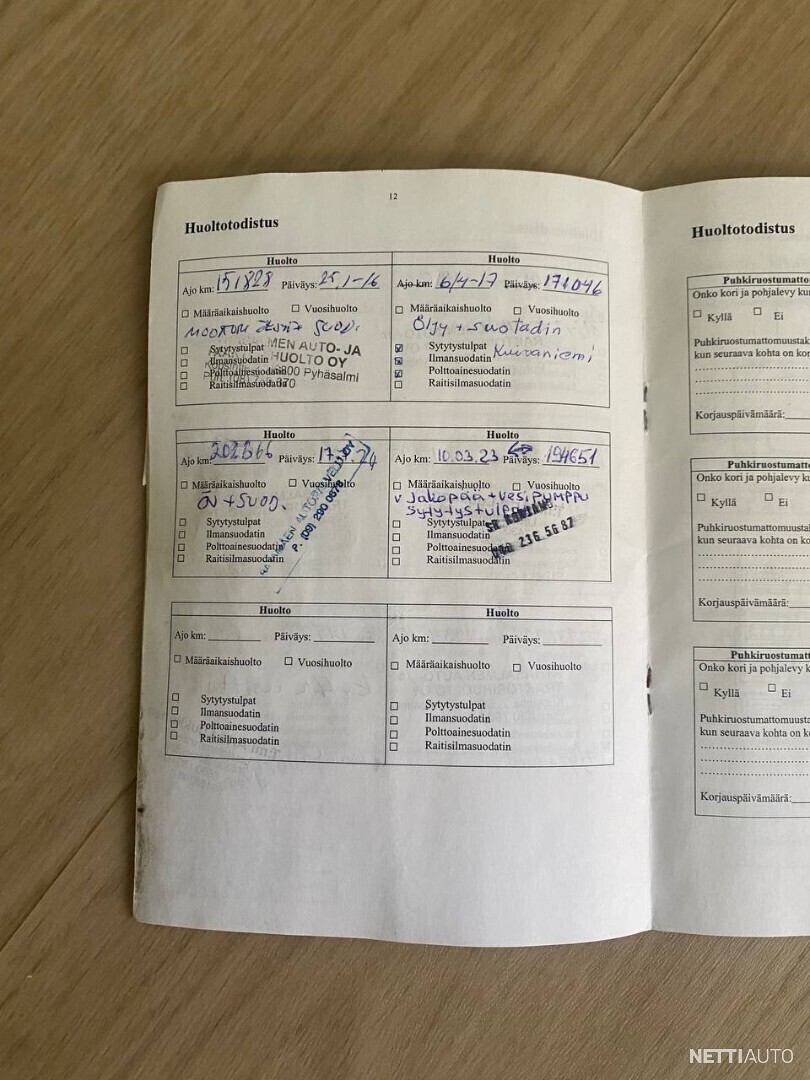 12
Huoltotodistus
Huolto
Ajo km: 151828 Päiväys: 25.1-16
Määräaikaishuolto Vuosihuolto
MOOTORI SUOD.
Sytytystulpat
Ilmansuodatin
Polttoainesuodatin
Raitisilmasuodatin
MEN AUTO- JA
HUOLTO OY
800 Pyhäsalmi
Huolto
Ajo km: 6/4-17 Päiväys: 171046
Määräaikaishuolto Vuosihuolto
Öljy + Suotadin
Kuivaniemi
Sytytystulpat
Ilmansuodatin
Polttoainesuodatin
Raitisilmasuodatin
Huolto
Ajo km: Päiväys: 17.7.24
Määräaikaishuolto Vuosihuolto
+ SUOD.
Sytytystulpat
Ilmansuodatin
Polttoainesuodatin
Raitisilmasuodatin
P. (09) 290 0676
Huolto
Ajo km: 10.03.23 Päiväys: 194651
Määräaikaishuolto Vuosihuolto
v Jakopää + vesipumppu
Sytytystulpat
Sytytystulpat
Ilmansuodatin
Polttoainesuodatin
Raitisilmasuodatin
236 56 87
Huolto
Ajo km: Päiväys:
Määräaikaishuolto Vuosihuolto
Sytytystulpat
Ilmansuodatin
Polttoainesuodatin
Raitisilmasuodatin
Huolto
Ajo km: Päiväys:
Määräaikaishuolto Vuosihuolto
Sytytystulpat
Ilmansuodatin
Polttoainesuodatin
Raitisilmasuodatin
Huoltotodistus
Puhkiruostumatto
Onko kori ja pohjalevy ku
Kyllä Ei
Puhkiruostumattomuustak
kun seuraava kohta on ko
Korjauspäivämäärä:
Puhkiruostumatt
Onko kori ja pohjalevy k
Kyllä Ei
Puhkiruostumattomuusta
kun seuraava kohta on ko
Korjauspäivämäärä:
Puhkiruostumatt
Onko kori ja pohjalevy k
Kyllä Ei
Puhkiruostumattomuusta
kun seuraava kohta on k
Korjauspäivämäärä:
NETTIAUTO